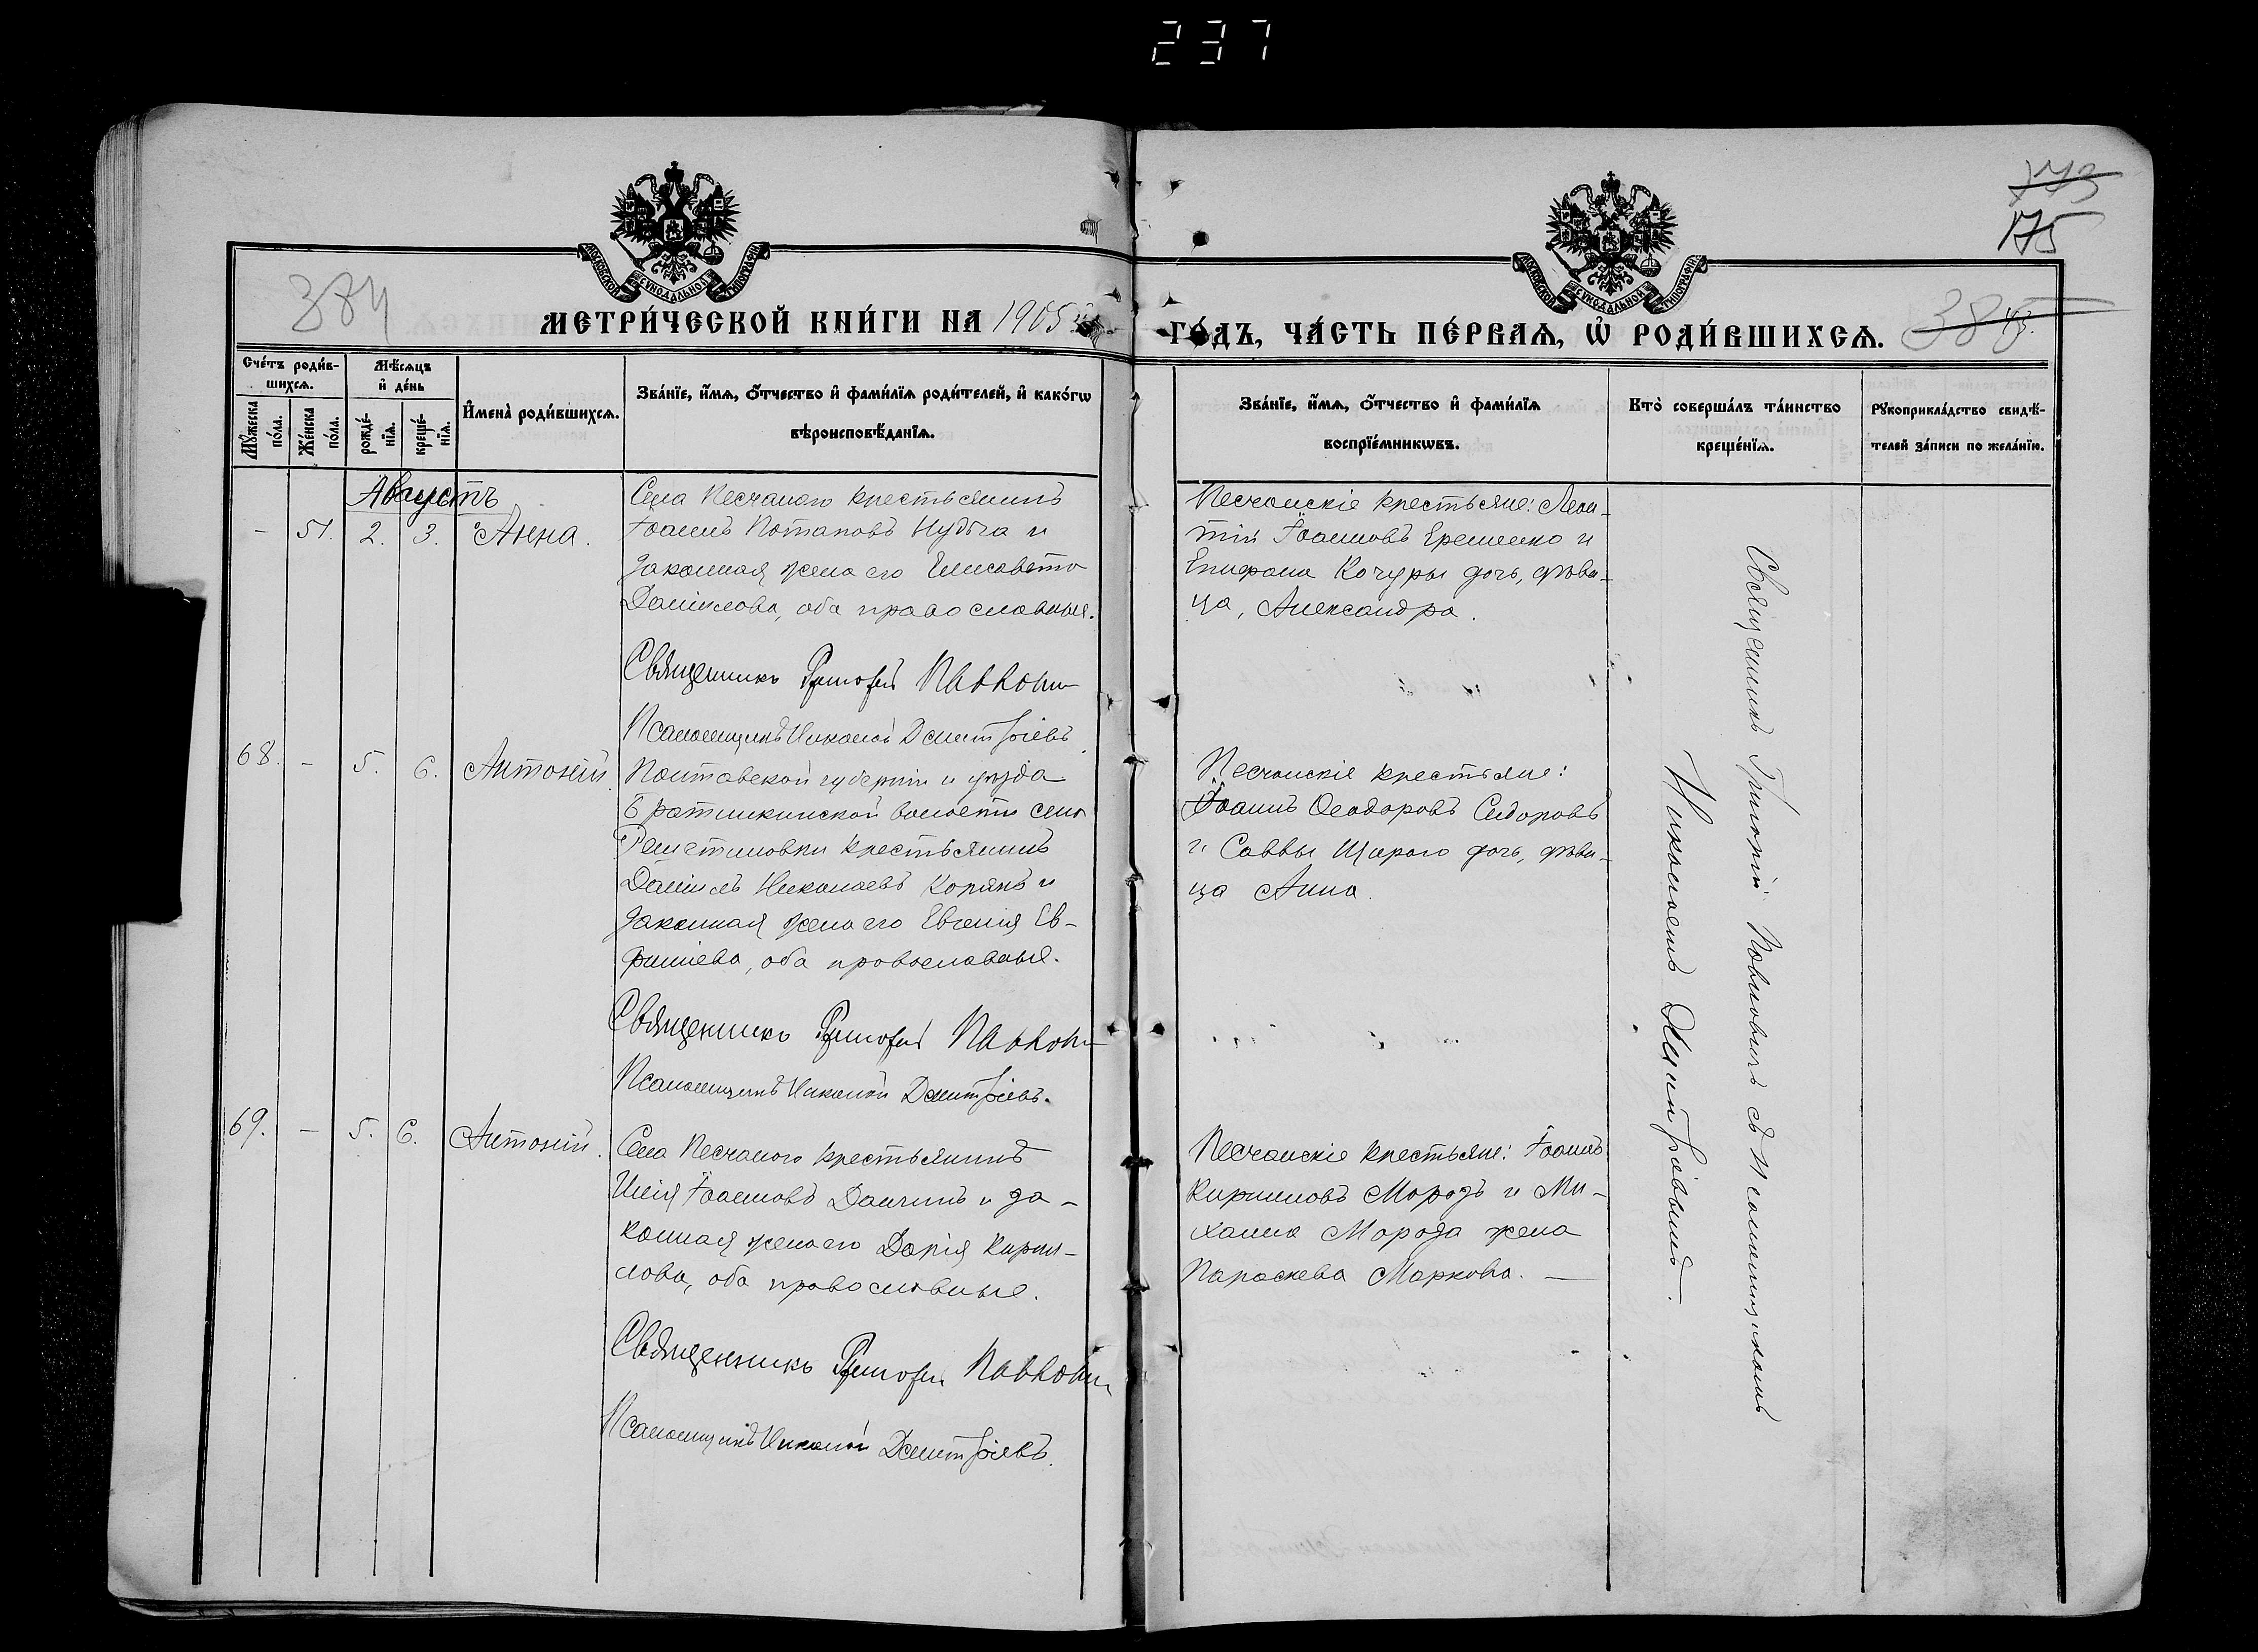 237
173
175
384
МЕТРИ́ЧЕСКОЙ КНИ́ГИ НА 1905 й
ГО́ДЪ, ЧА́СТЬ ПЕ́РВАЯ, Ѽ РОДИ́ВШИХСЯ.
Сче́тъ роди́в-
шихсѧ.
Мѣ́сѧцъ
и҆ де́нь
Мꙋ́жеска
по́ла.
Же́нска
по́ла.
рожде́-
нїѧ.
креще́-
нїѧ.
И҆мена̀ роди́вшихсѧ.
Зва́нїе, и҆́мѧ, ѻ҆́тчество и҆ фами́лїѧ роди́телей, и҆ како́гѡ
вѣроисповѣ́данїѧ.
Зва́нїе, и҆́мѧ, ѻ҆́тчество и҆ фами́лїѧ
воспрїе́мникѡвъ.
Кто̀ соверша́лъ та́инство
креще́нїѧ.
Рꙋкоприкла́дство свидѣ́-
телей за́писи по жела́нїю.
Августъ
– 51. 2. 3. Анна.
Села Песчаного крестьянинъ
Іоаннъ Потаповъ Нудьга и
законная жена его Елисавета
Даніилова, оба православные.
Священникъ Григорій Павлов
Псаломщикъ Николай Димитріевъ
Песчанскіе крестьяне: Леон-
тій Іоанновъ Еременко и
Епифана Кочуры дочь, дѣви-
ца, Александра.
68. – 5. 6. Антоній.
Полтавской губерніи и уѣзда
Братешкинской волости села
Решетиловки крестьянинъ
Даніилъ Николаевъ Корякъ и
законная жена его Евгенія Ев-
фиміева, оба православные.
Священникъ Григорій Павлов
Псаломщикъ Николай Димитріевъ.
Песчанскіе крестьяне:
Іоаннъ Ѳеодоровъ Сидоровъ
и Саввы Щираго дочь, дѣви-
ца Анна.
69. – 5. 6. Антоній.
Села Песчаного крестьянинъ
Илія Іоанновъ Данчинъ и за-
конная жена его Дарія Кирил-
лова, оба православные.
Священникъ Григорій Павлов
Псаломщикъ Николай Димитріевъ.
Песчанскіе крестьяне: Іоаннъ
Кирилловъ Морозъ и Ми-
хаила Мороза жена
Параскева Маркова. —
Священникъ Григорій Павловъ съ псаломщикомъ
Николаемъ Димитріевымъ.